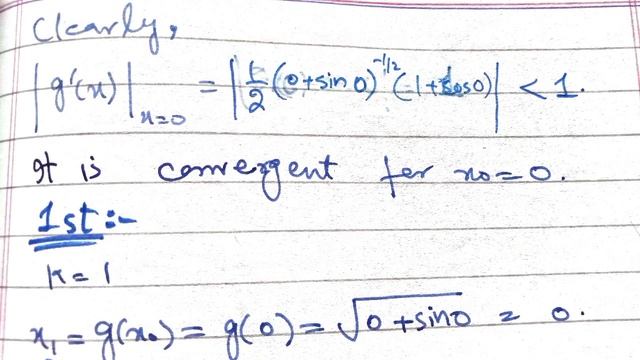 Clearly,
|g'(x)|_{x=0} = |1/2 (0+sin0)^{-1/2} (-1+cos0)| < 1.
It is convergent for x0=0.
1st:-
K=1
x₁ = g(x₀) = g(0) = √(0+sin0) = 0.